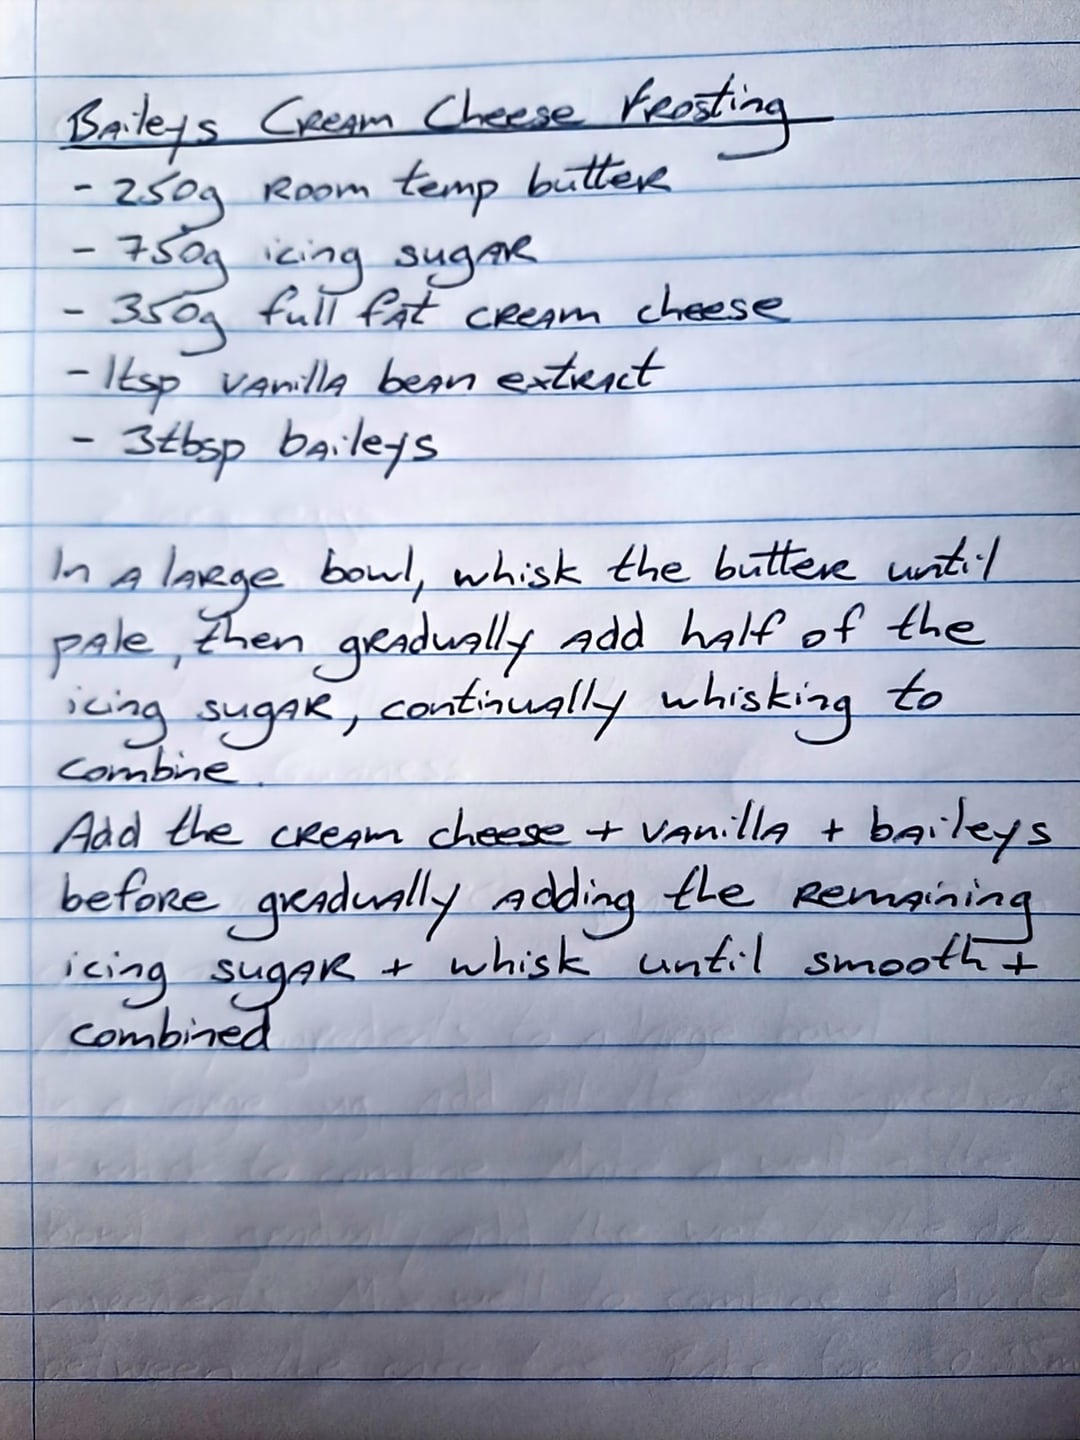 Baileys Cream Cheese Frosting
- 250g Room temp butter
- 750g icing sugar
- 350g full fat cream cheese
- 1tsp vanilla bean extract
- 3tbsp baileys
In a large bowl, whisk the butter until
pale, then gradually add half of the
icing sugar, continually whisking to
combine.
Add the cream cheese + vanilla + baileys
before gradually adding the remaining
icing sugar + whisk until smooth +
combined